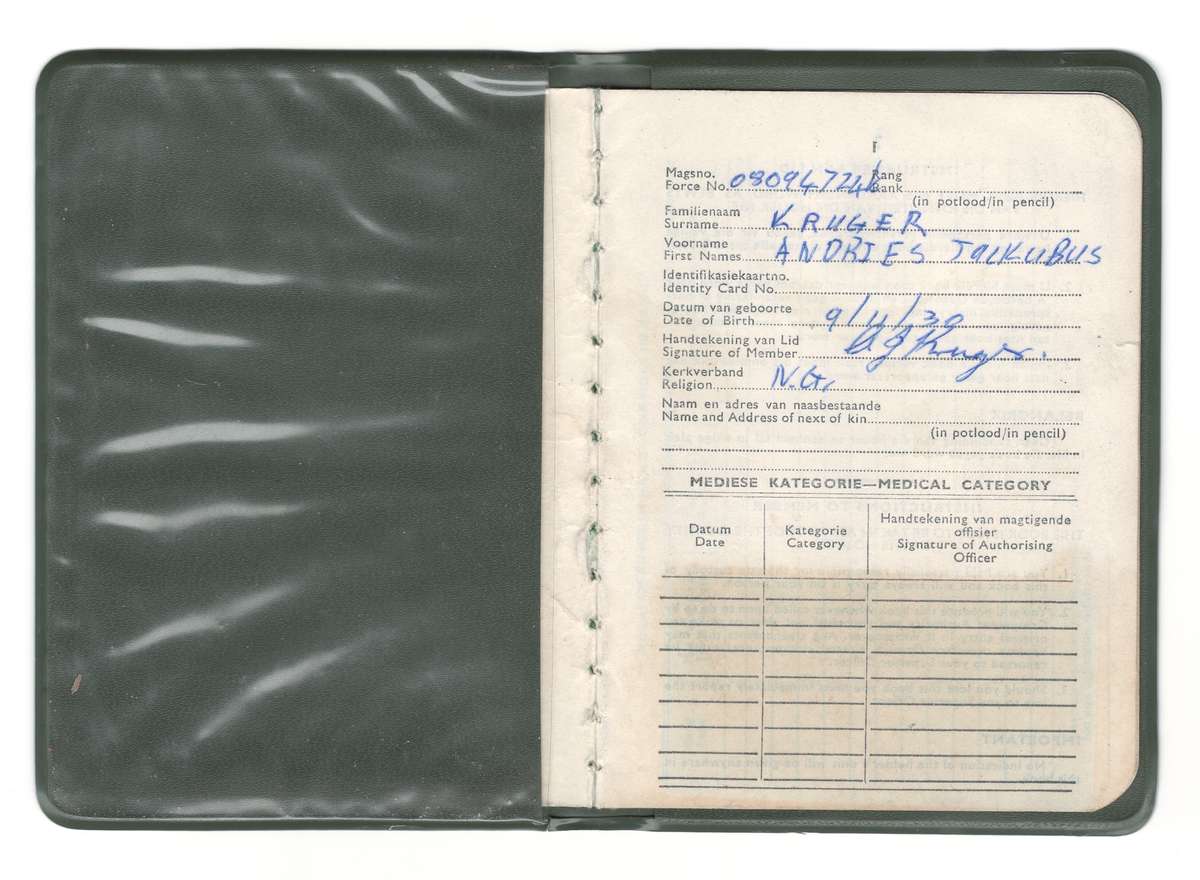 1
Magsno. Rang
Force No. 08094724 Rank
(in potlood/in pencil)
Familienaam
Surname KRUGER
Voorname
First Names ANDRIES
Identifikasiekaartno.
Identity Card No.
Datum van geboorte
Date of Birth 9/11/30
Handtekening van Lid
Signature of Member AJ Kruger.
Kerkverband
Religion N.G.
Naam en adres van naasbestaande
Name and Address of next of kin
(in potlood/in pencil)
MEDIESE KATEGORIE—MEDICAL CATEGORY
Datum
Date
Kategorie
Category
Handtekening van magtigende
offisier
Signature of Authorising
Officer